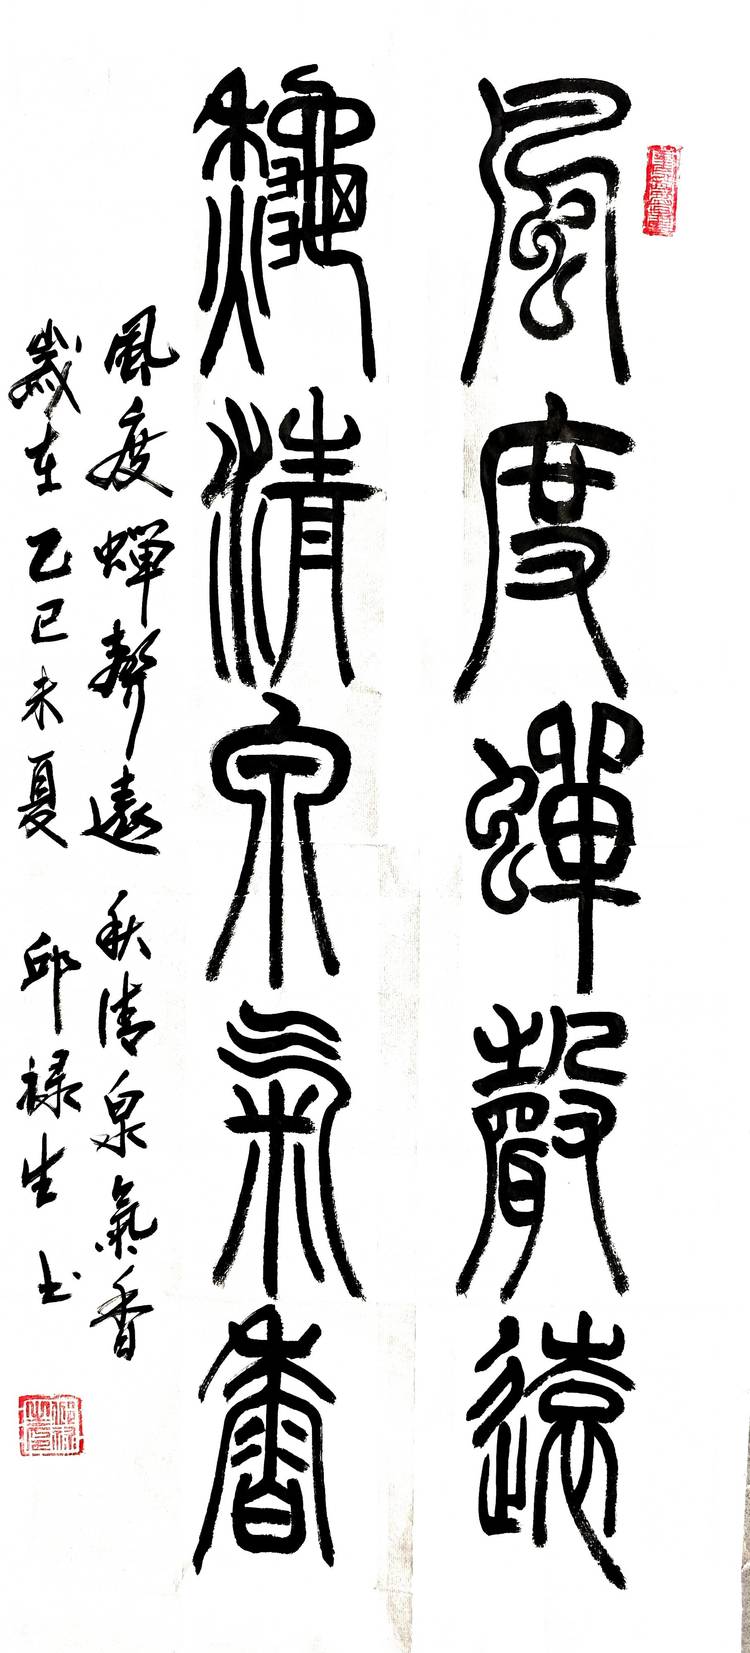 風度蟬聲遠
龝清泉氣香
風度蟬聲遠 秋清泉氣香
歲在乙巳未夏 邱祿生书